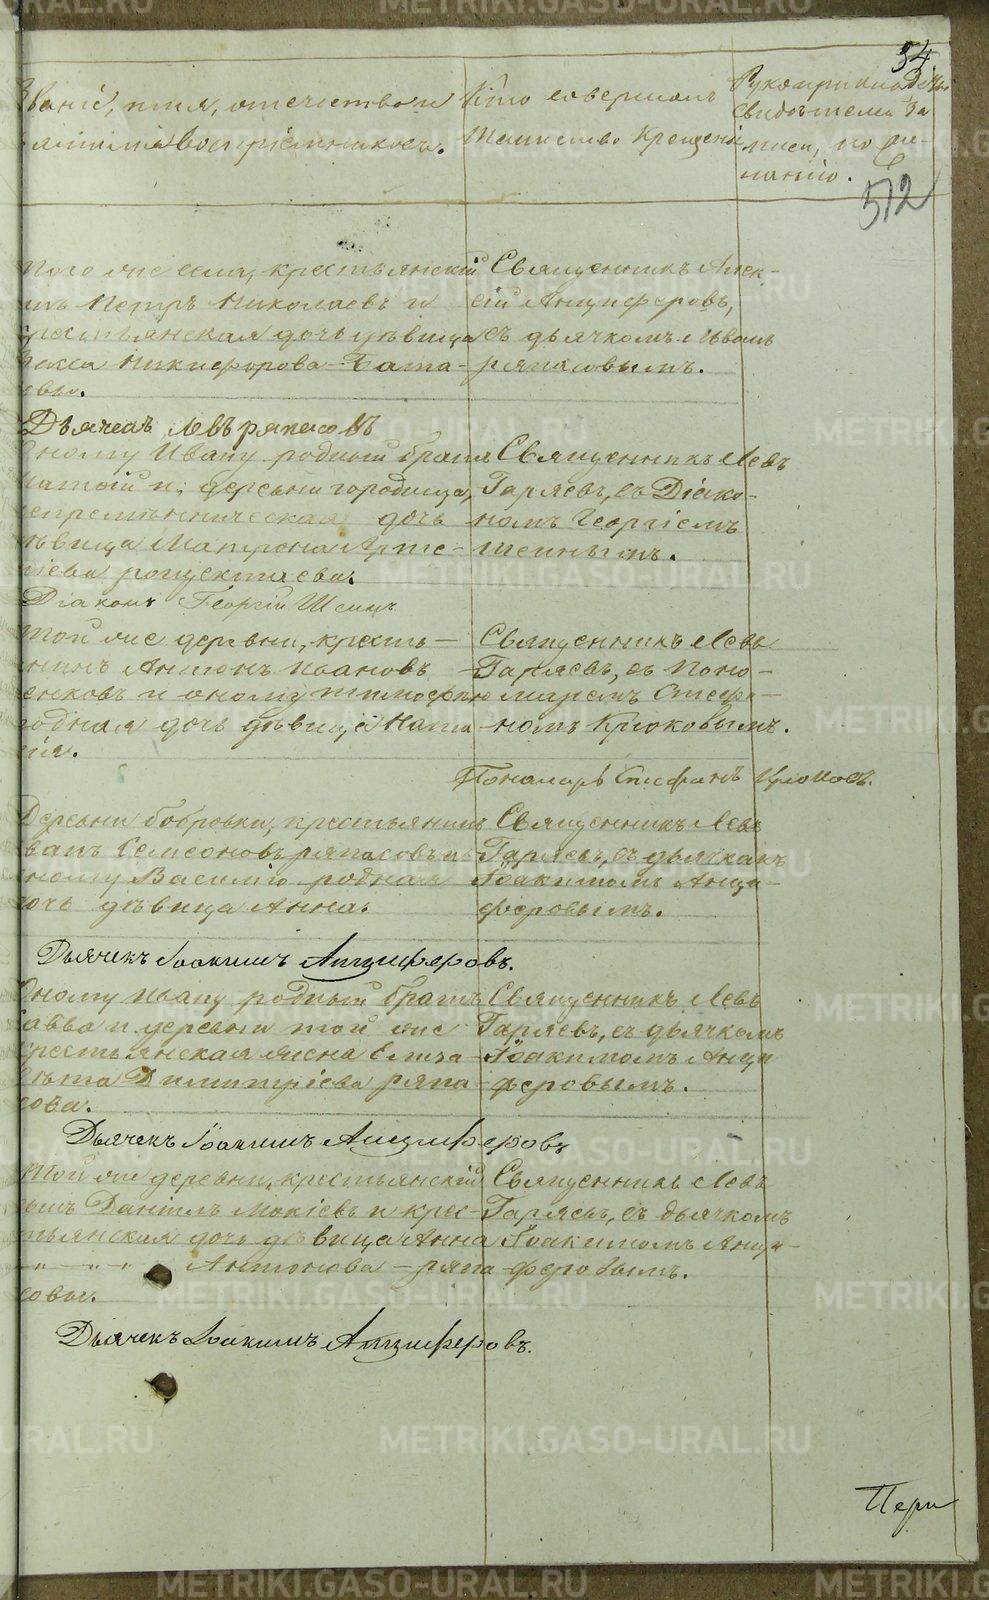 34.
Званіе, имя, отечество и
фамилія воспріемниковъ.
Кто совершалъ
Таинство Крещенія
Рукоприкладство
свидѣтелей за-
писи, по же-
ланію.
512
Того же села, крестьянскій
сынъ Петръ Николаевъ и
крестьянская дочь дѣвица
Никифорова Бата-
евы.
Священникъ Алек-
сій Анциферовъ,
съ дьячкомъ Львомъ
ряпасовымъ.
Дьячекъ Левъ ряпасовъ
Оному Ивану родный братъ
и деревни городища,
дочь
дѣвица Матрона Арте-
міева
Священникъ Левъ
Гаряевъ, съ Діако-
номъ Георгіемъ
Діаконъ Георгій
Той же деревни, кресть-
янинъ Антонъ Ивановъ
и оному Тимофѣю
родная дочь дѣвица Ната-
лія.
Священникъ Левъ
Гаряевъ, съ Поно-
маремъ Стефа-
номъ Крюковымъ.
Пономарь Стефанъ Крюковъ.
Деревни бобровки, крестьянинъ
Иванъ Семеоновъ ряпасовъ и
оному Василію родная
дочь дѣвица Анна.
Священникъ Левъ
Гаряевъ, съ дьячкомъ
Іоакимомъ Анци-
феровымъ.
Дьячекъ Іоакимъ Анциферовъ.
Оному Ивану родный братъ
Савва и деревни той же
крестьянская жена Елиза-
вета Димитріева ряпа-
сова.
Священникъ Левъ
Гаряевъ, съ дьячкомъ
Іоакимомъ Анци-
феровымъ.
Дьячекъ Іоакимъ Анциферовъ
Той же деревни, крестьянскій
сынъ Даніилъ Мокіевъ и крес-
тьянская дочь дѣвица Анна
Антонова ряпа-
совы.
Священникъ Левъ
Гаряевъ, съ дьячкомъ
Іоакимомъ Анци-
феровымъ.
Дьячекъ Іоакимъ Анциферовъ.
METRIKI.GASO-URAL.RU